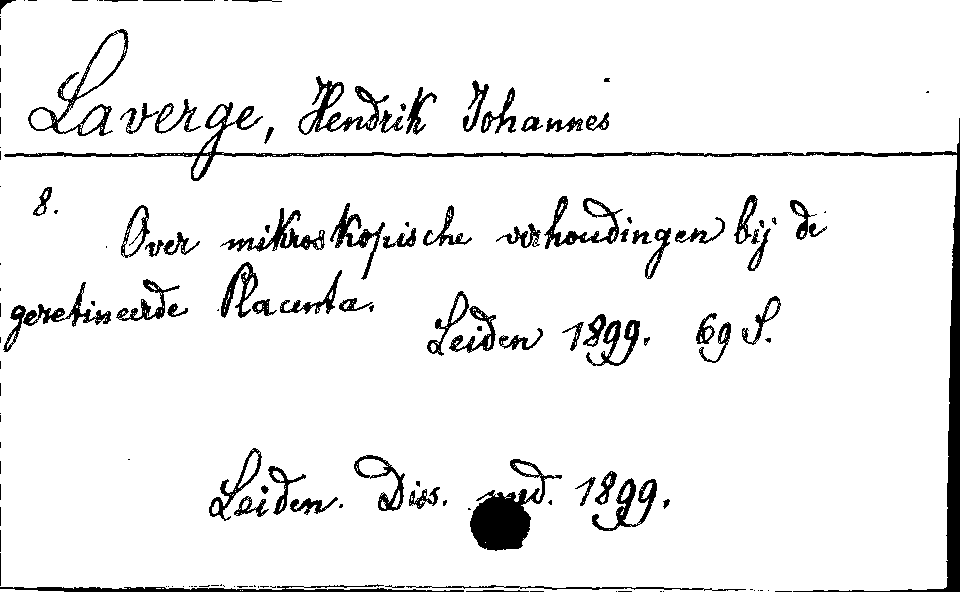 Laverge, Hendrik Johannes
8.
Over mikroskopische verhoudingen bij de
geretineerde Placenta.
Leiden 1899. 69 S.
Leiden. Diss. med. 1899.